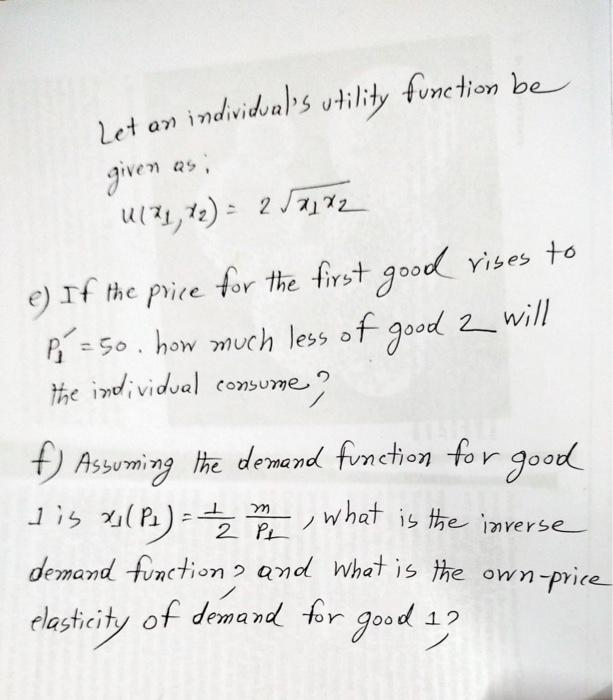 Let an individual's utility function be
given as;
u(x₁,x₂) = 2√x₁x₂
e) If the price for the first good rises to
P₁′ = 50. how much less of good 2 will
the individual consume?
f) Assuming the demand function for good
1 is x₁(P₁) = 1/2 m/P₁, what is the inverse
demand function? and what is the own-price
elasticity of demand for good 1?